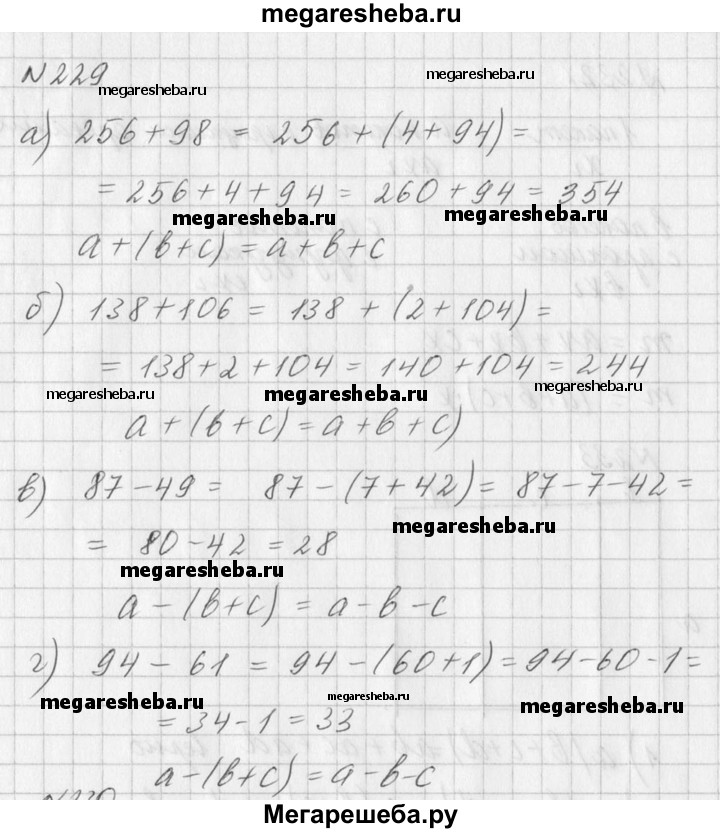 megaresheba.ru
N229
megaresheba.ru megaresheba.ru
а) 256+98 = 256+(4+94)=
= 256+4+94 = 260+94 = 354
megaresheba.ru megaresheba.ru
a+(b+c)=a+b+c
б) 138+106 = 138+(2+104)=
= 138+2+104=140+104=244
megaresheba.ru megaresheba.ru megaresheba.ru
a+(b+c)=a+b+c)
в) 87-49= 87-(7+42)= 87-7-42=
megaresheba.ru
= 80-42 =28
megaresheba.ru
a-(b+c)=a-b-c
г) 94-61 = 94-(60+1)=94-60-1=
megaresheba.ru megaresheba.ru megaresheba.ru
=34-1=33
a-(b+c)=a-b-c
Мегарешеба.ру